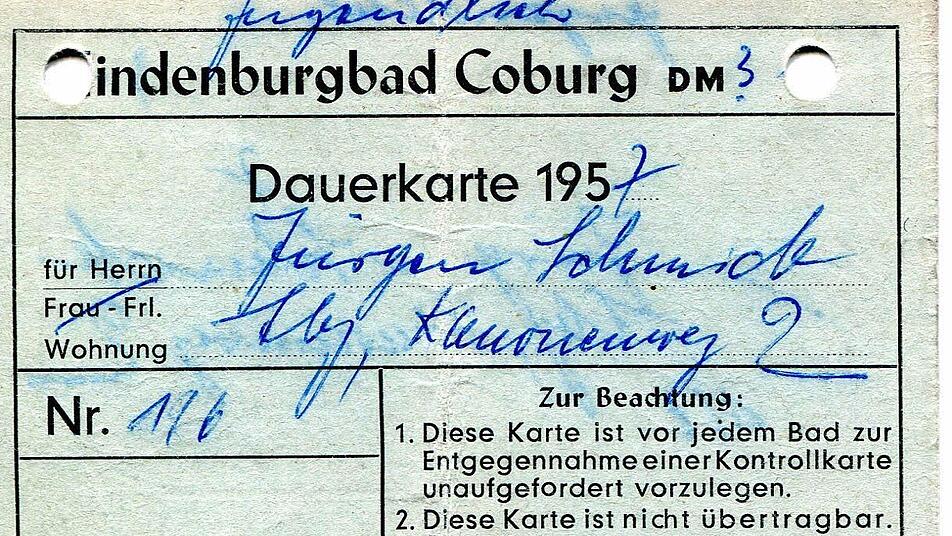 Jugendliche
indenburgbad Coburg DM 3
Dauerkarte 1957
für Herrn Jürgen Schmidt
Frau - Frl.
Wohnung Cbg, Kanonenweg 2
Nr. 116
Zur Beachtung:
1. Diese Karte ist vor jedem Bad zur
Entgegennahme einer Kontrollkarte
unaufgefordert vorzulegen.
2. Diese Karte ist nicht übertragbar.